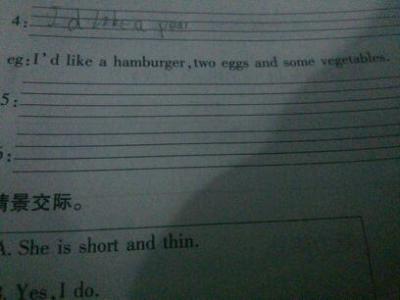 4: I'd like a pear
eg:I'd like a hamburger,two eggs and some vegetables.
5:
6:
情景交际。
A. She is short and thin.
B. Yes,I do.